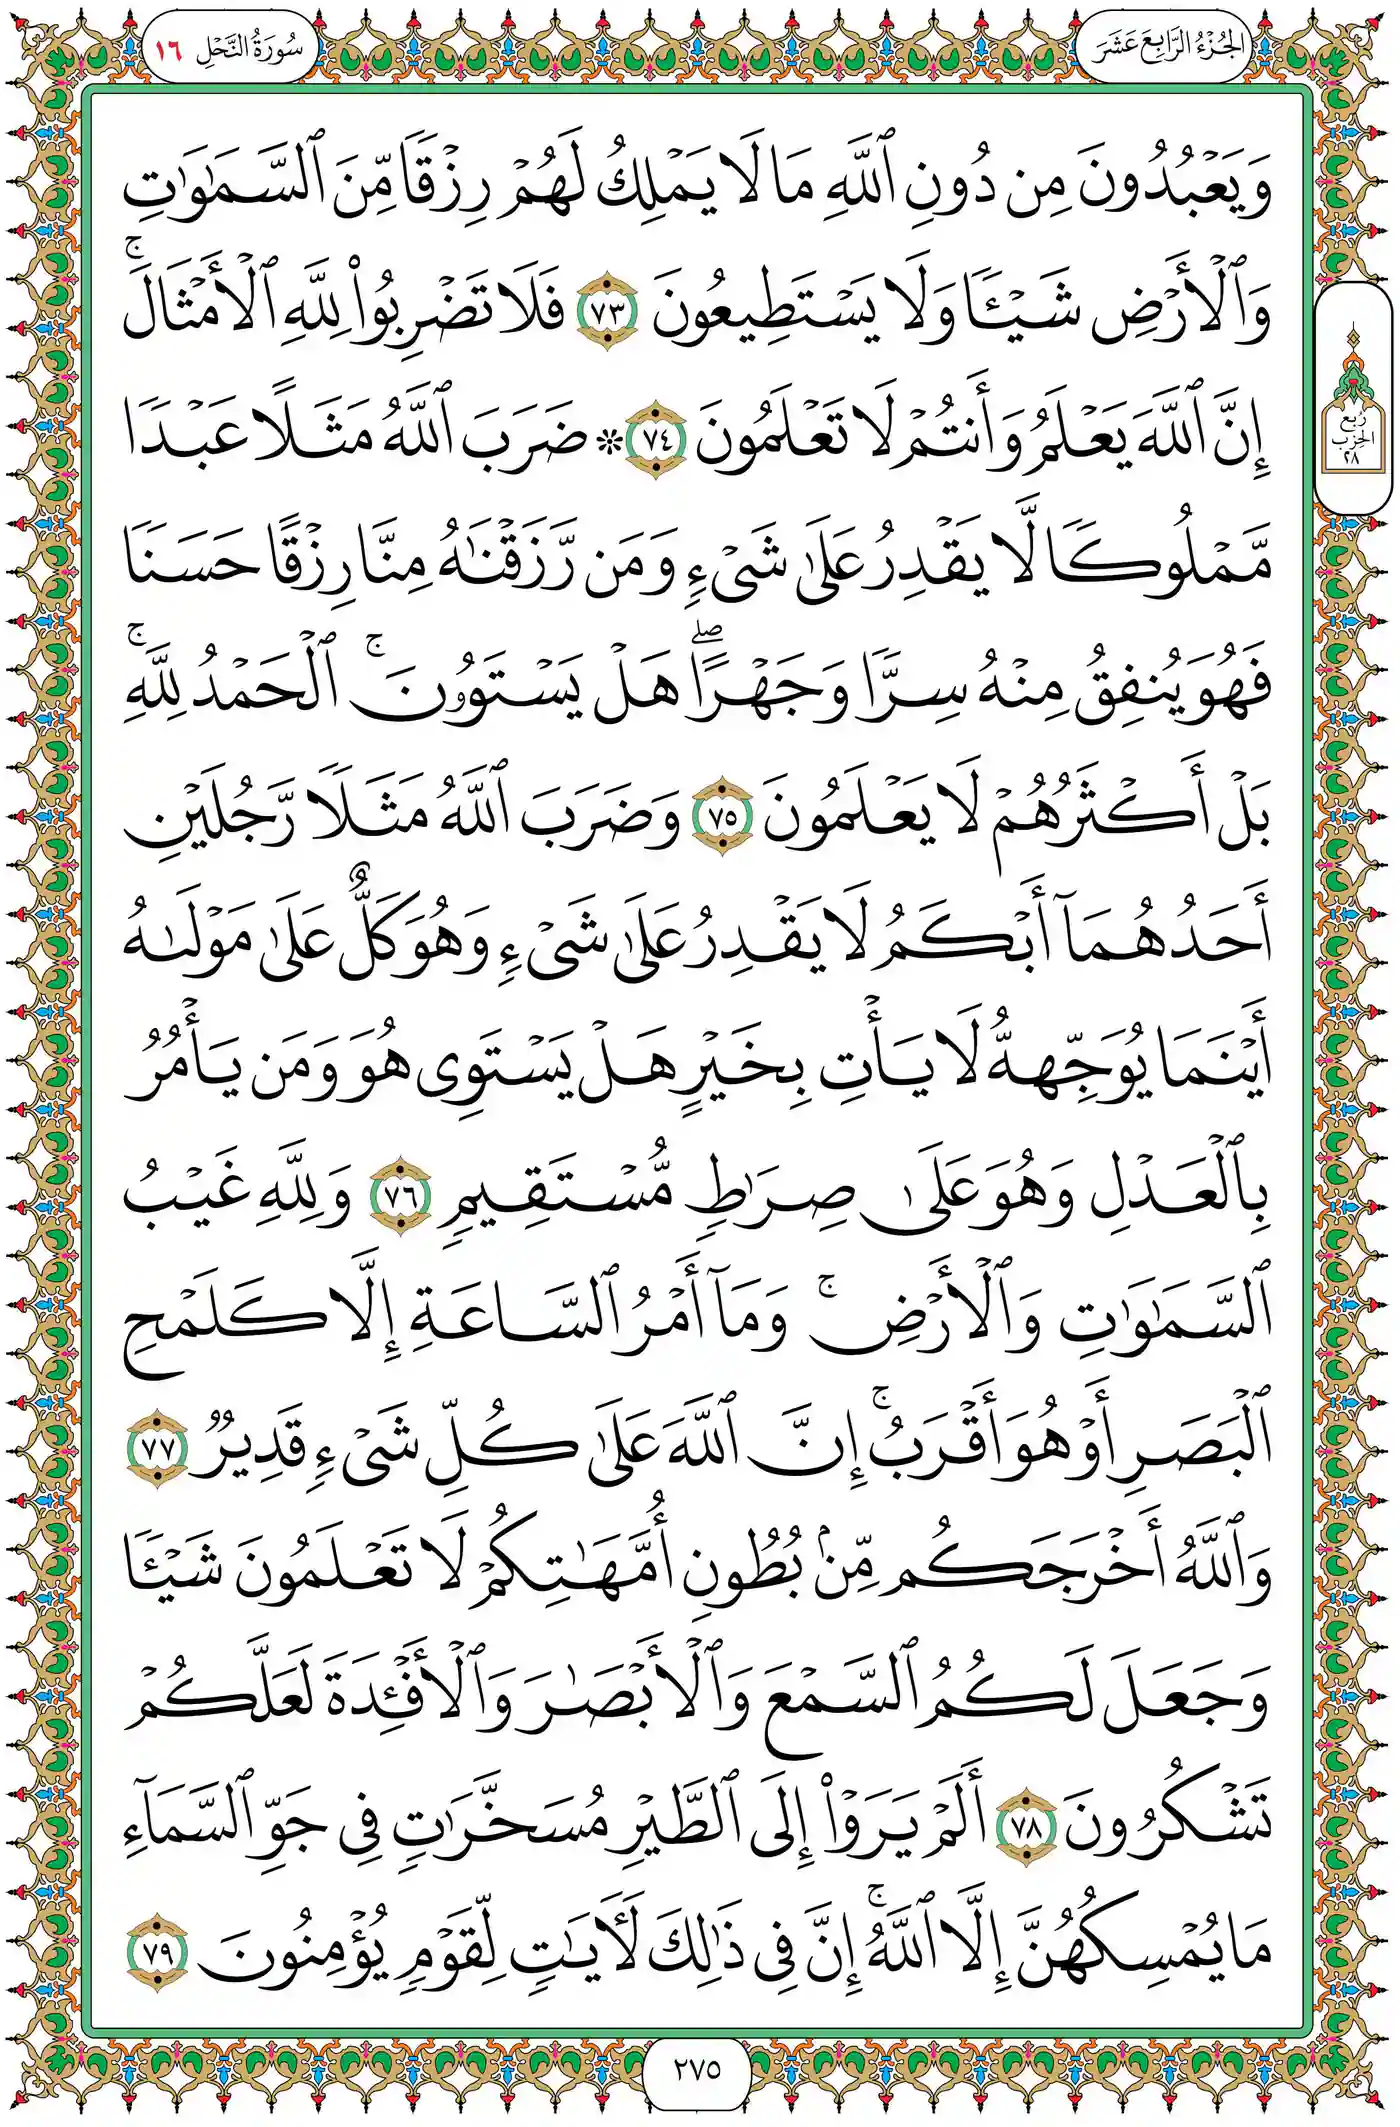 الجُزْءُ الرَّابِعَ عَشَرَ
سُورَةُ النَّحْلِ ١٦
وَيَعْبُدُونَ مِن دُونِ ٱللَّهِ مَا لَا يَمْلِكُ لَهُمْ رِزْقًا مِّنَ ٱلسَّمَٰوَٰتِ
وَٱلْأَرْضِ شَيْـًٔا وَلَا يَسْتَطِيعُونَ ٧٣ فَلَا تَضْرِبُوا۟ لِلَّهِ ٱلْأَمْثَالَ ۚ
إِنَّ ٱللَّهَ يَعْلَمُ وَأَنتُمْ لَا تَعْلَمُونَ ٧٤ * ضَرَبَ ٱللَّهُ مَثَلًا عَبْدًا
مَّمْلُوكًا لَّا يَقْدِرُ عَلَىٰ شَىْءٍ وَمَن رَّزَقْنَٰهُ مِنَّا رِزْقًا حَسَنًا
فَهُوَ يُنفِقُ مِنْهُ سِرًّا وَجَهْرًا ۖ هَلْ يَسْتَوُۥنَ ۚ ٱلْحَمْدُ لِلَّهِ ۚ
بَلْ أَكْثَرُهُمْ لَا يَعْلَمُونَ ٧٥ وَضَرَبَ ٱللَّهُ مَثَلًا رَّجُلَيْنِ
أَحَدُهُمَآ أَبْكَمُ لَا يَقْدِرُ عَلَىٰ شَىْءٍ وَهُوَ كَلٌّ عَلَىٰ مَوْلَىٰهُ
أَيْنَمَا يُوَجِّههُّ لَا يَأْتِ بِخَيْرٍ هَلْ يَسْتَوِى هُوَ وَمَن يَأْمُرُ
بِٱلْعَدْلِ وَهُوَ عَلَىٰ صِرَٰطٍ مُّسْتَقِيمٍ ٧٦ وَلِلَّهِ غَيْبُ
ٱلسَّمَٰوَٰتِ وَٱلْأَرْضِ ۚ وَمَآ أَمْرُ ٱلسَّاعَةِ إِلَّا كَلَمْحِ
ٱلْبَصَرِ أَوْ هُوَ أَقْرَبُ ۚ إِنَّ ٱللَّهَ عَلَىٰ كُلِّ شَىْءٍ قَدِيرٌ ٧٧
وَٱللَّهُ أَخْرَجَكُم مِّنۢ بُطُونِ أُمَّهَٰتِكُمْ لَا تَعْلَمُونَ شَيْـًٔا
وَجَعَلَ لَكُمُ ٱلسَّمْعَ وَٱلْأَبْصَٰرَ وَٱلْأَفْـِٔدَةَ لَعَلَّكُمْ
تَشْكُرُونَ ٧٨ أَلَمْ يَرَوْا۟ إِلَى ٱلطَّيْرِ مُسَخَّرَٰتٍ فِى جَوِّ ٱلسَّمَآءِ
مَا يُمْسِكُهُنَّ إِلَّا ٱللَّهُ ۚ إِنَّ فِى ذَٰلِكَ لَءَايَٰتٍ لِّقَوْمٍ يُؤْمِنُونَ ٧٩
رُبع
الحِزْب
٢٨
٢٧٥